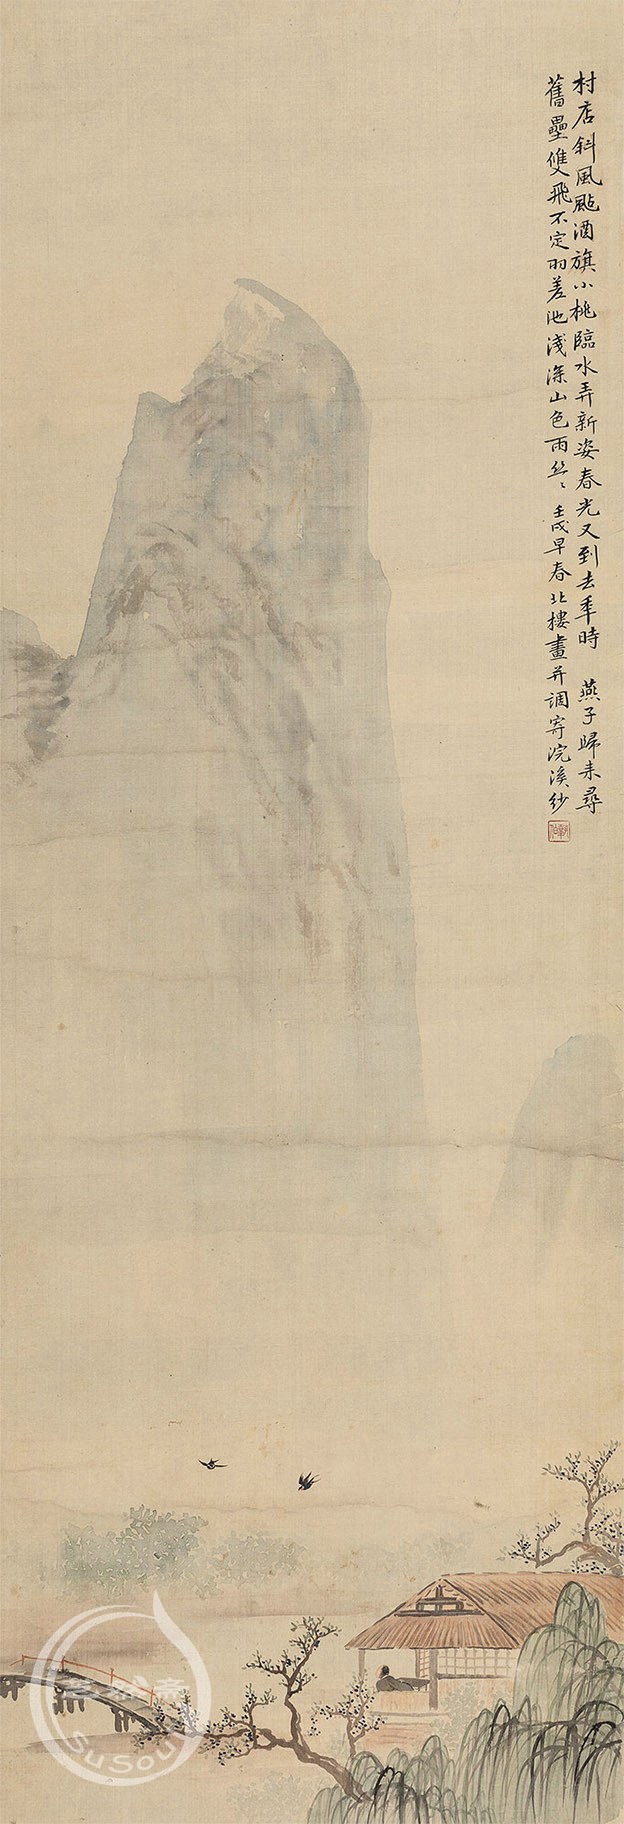 村店斜風颭酒旗小桃臨水弄新姿春光又到去秊時 燕子歸来尋
舊壘雙飛不定羽差池淺深山色雨丝〻 壬戌早春北樓畫并調寄浣溪紗
SuSoul